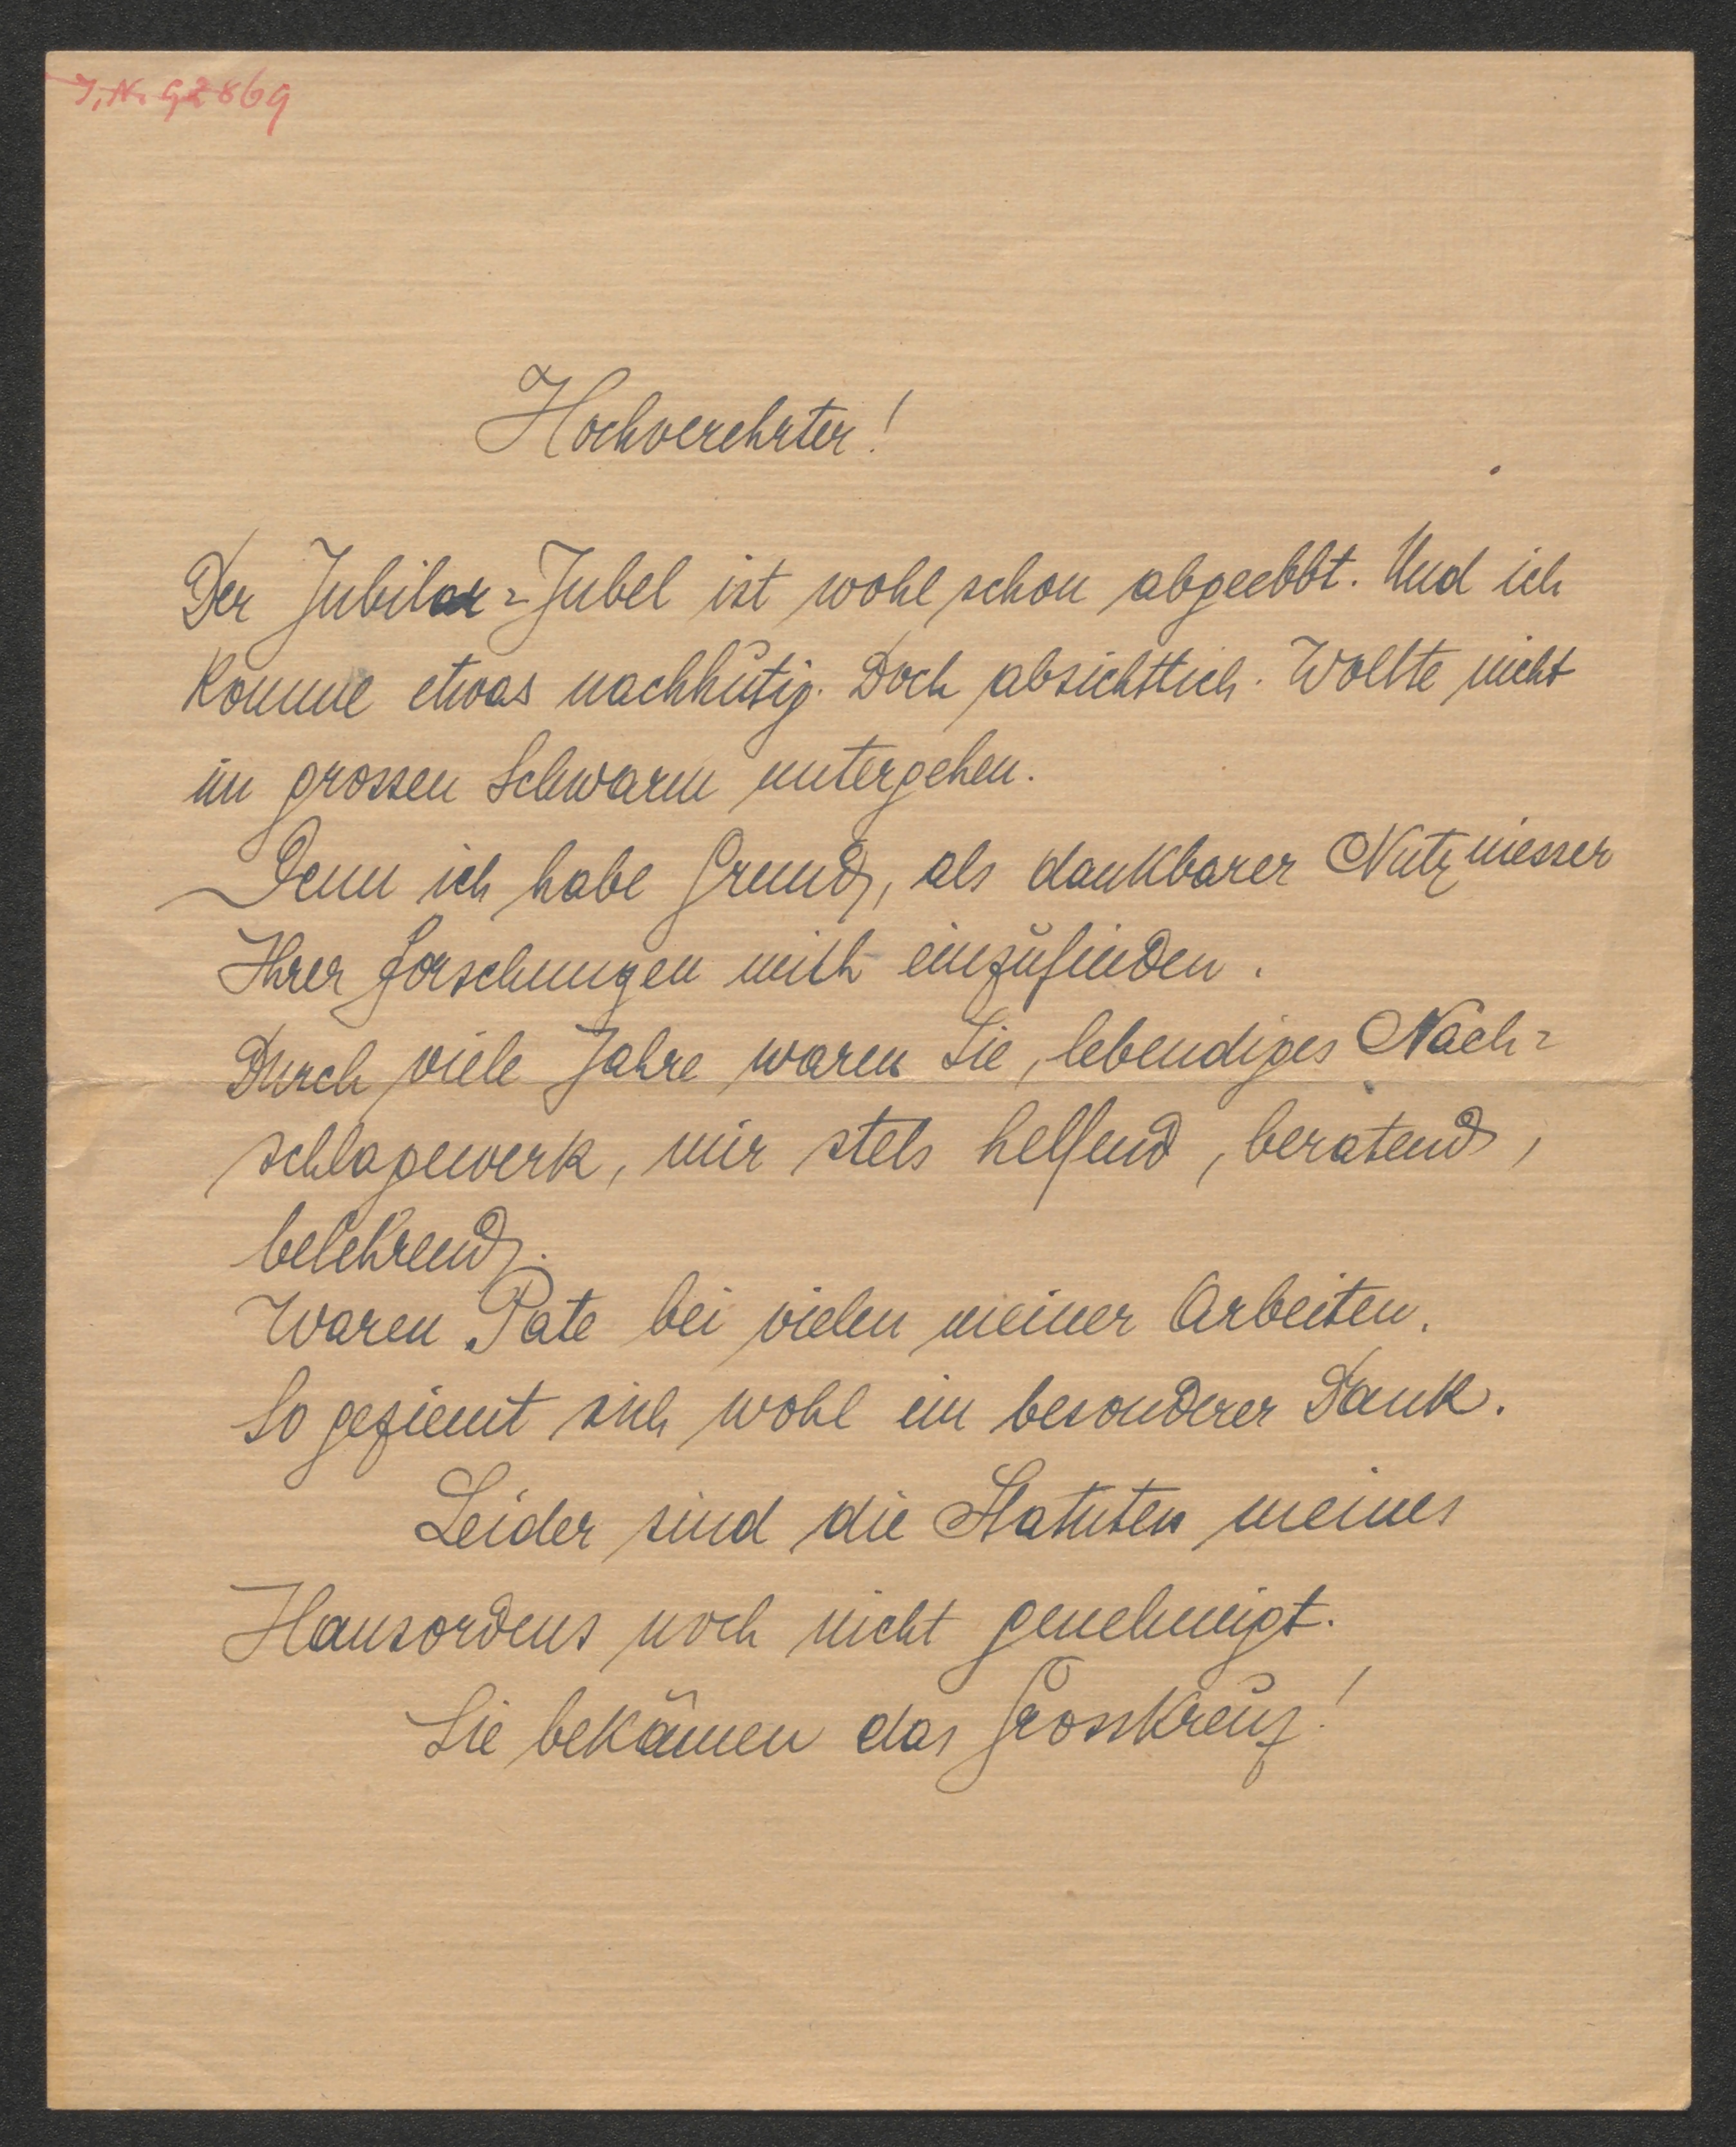 I. N. 92869
Hochverehrter!
Der Jubilar=Jubel ist wohl schon abgeebbt. Und ich
komme etwas nachhutig. Doch absichtlich. Wollte nicht
im grossen Schwarm untergehen.
Denn ich habe Grund, als dankbarer Nutzniesser
Ihrer Forschungen mich einzufinden.
Durch viele Jahre waren Sie, lebendiges Nach=
schlagewerk, mir stets helfend, beratend,
belehrend.
Waren Pate bei vielen meiner Arbeiten.
So geziemt sich wohl ein besonderer Dank.
Leider sind die Statuten meines
Hausordens noch nicht genehmigt.
Sie bekämen das Grosskreuz!